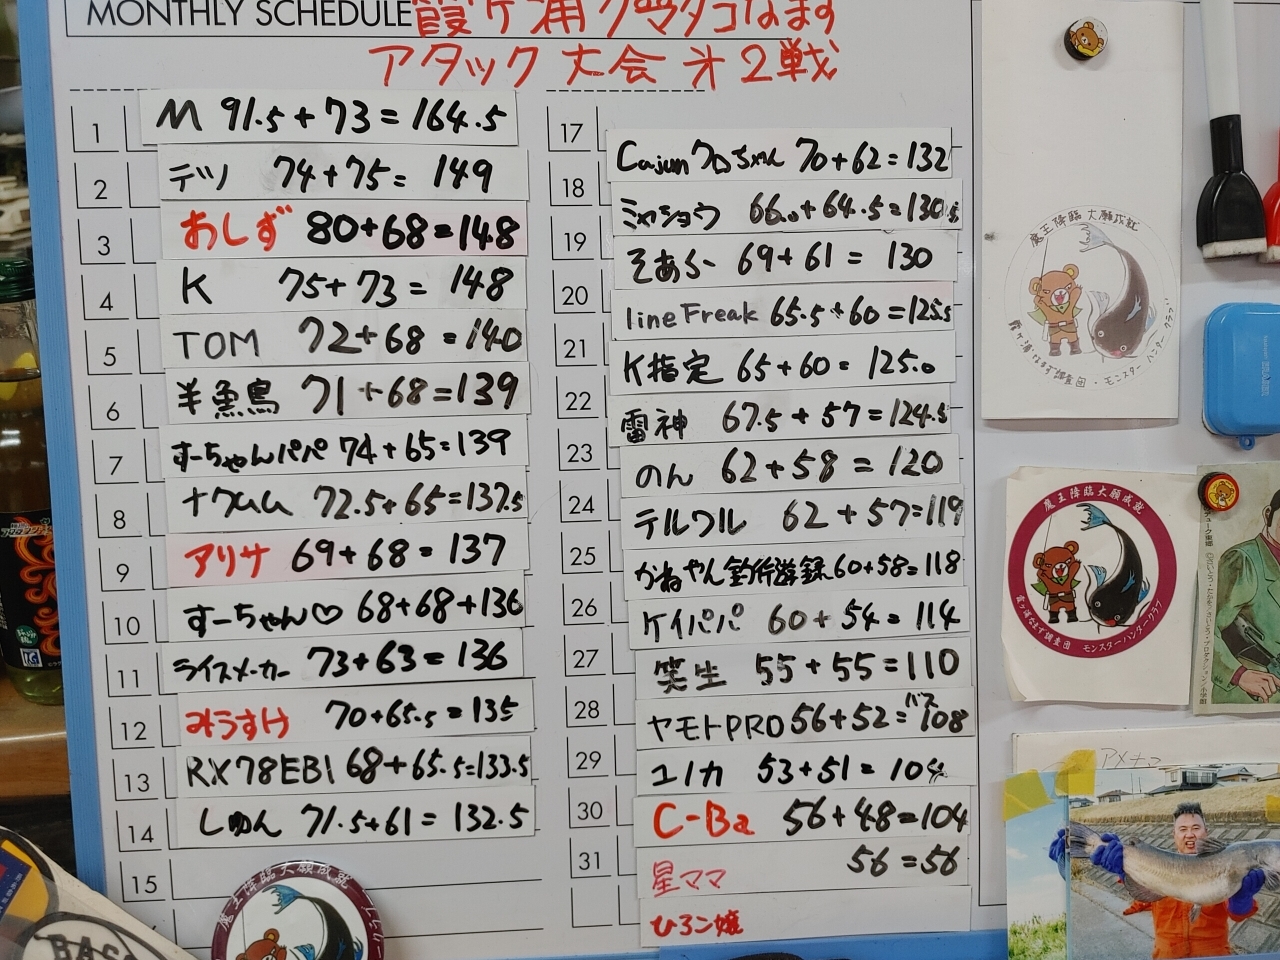 MONTHLY SCHEDULE 霞ヶ浦クマタコなます
アタック大会 才2戦
1 M 91.5+73=164.5
2 テツノ 74+75= 149
3 おしず 80+68=148
4 K 75+73= 148
5 TOM 72+68 =140
6 半魚鳥 71+68=139
7 すーちゃんパパ 74+65=139
8 ナクムム 72.5+65=137.5
9 アリサ 69+68= 137
10 すーちゃん♡ 68+68+136
11 ライスメーカー 73+63= 136
12 みうすけ 70+65.5=135
13 RX78EB1 68+65.5=133.5
14 しゅん 71.5+61= 132.5
15
17
Cajunクロちゃん 70+62=132
18 ミャショウ 66.0+64.5=130.5
19 そあらー 69+61= 130
20 line Freak 65.5+60=125.5
21 K指定 65+60= 125.0
22 雷神 67.5+57=124.5
23 のん 62+58= 120
24 テルワル 62+57=119
25 かねやん釣行遊録 60+58=118
26 ケイパパ 60+54= 114
27 笑生 55+55=110
28 ヤモトPRO 56+52=108
バス
29 ユノカ 53+51= 104
30 C-Ba 56+48=104
31 星ママ 56=56
ひろン嬢
魔王降臨大願成就
霞ヶ浦なまず調査団・モンスターハンタークラブ
魔王降臨大願成就
霞ヶ浦なまず調査団 モンスターハンタークラブ
魔王降臨大願成就
アメナマ
BASS